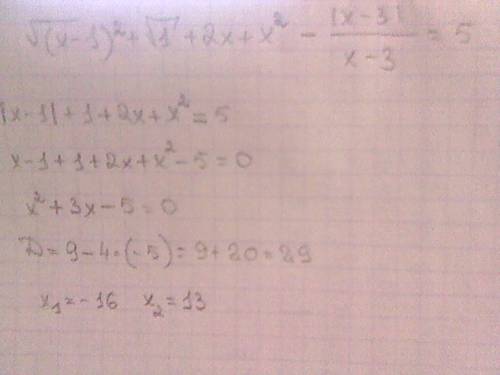 √(x-1)² + √1 + 2x + x² - |x-3|/(x-3) = 5
|x-1| + 1 + 2x + x² = 5
x-1+1+2x+x²-5=0
x²+3x-5=0
D=9-4·(-5)=9+20=29
x₁=-16 x₂=13